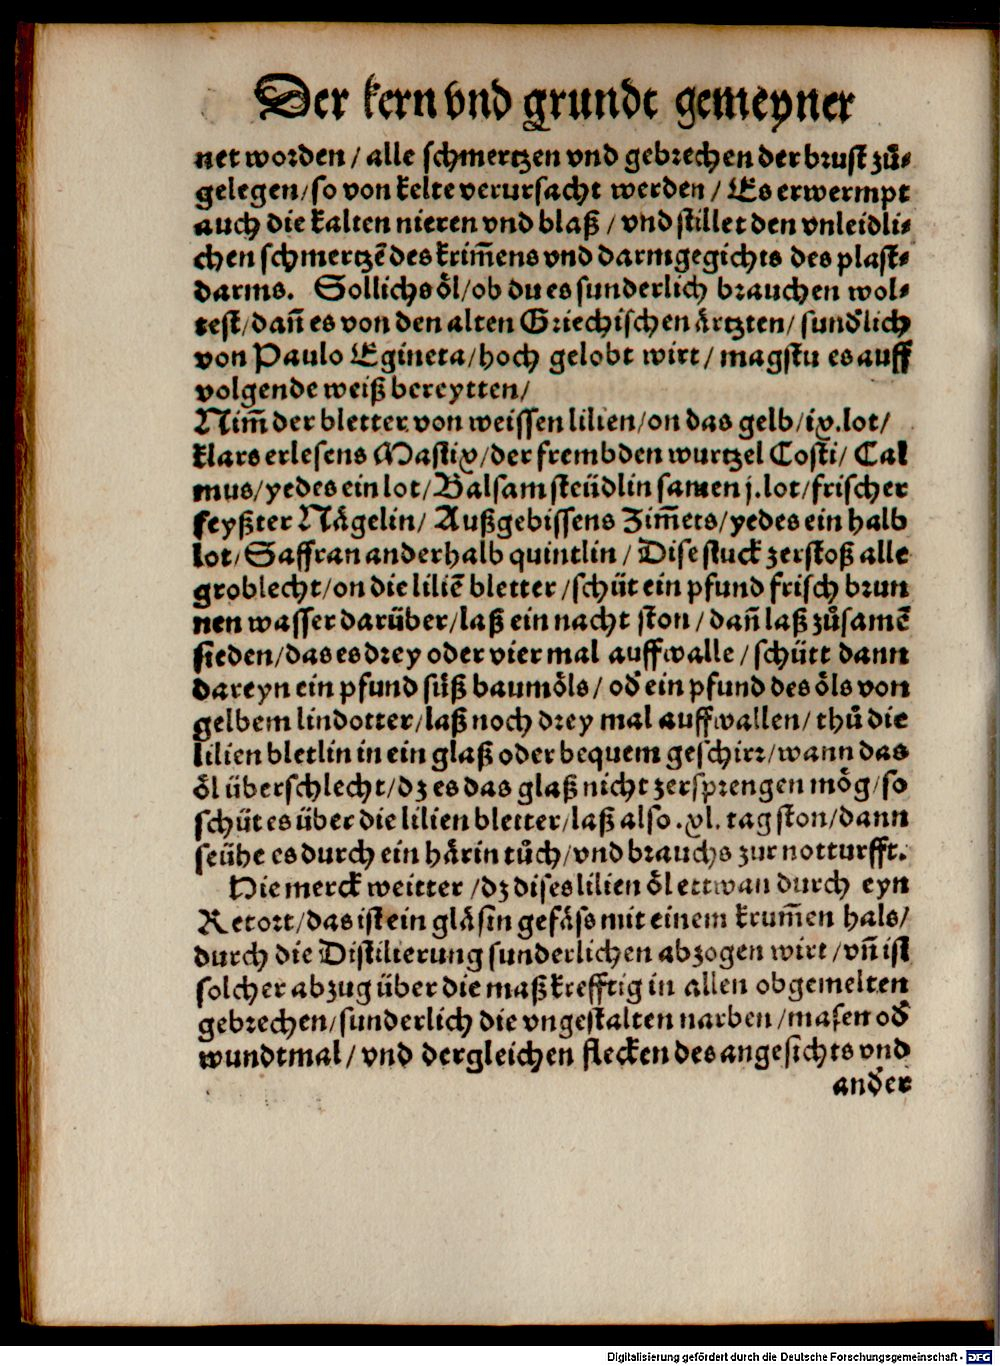 Der kern vnd grundt gemeyner
net worden / alle schmertzen vnd gebrechen der brust zů⸗
gelegen/so von kelte verursacht werden / Es erwermpt
auch die kalten nieren vnd blaß / vnd stillet den vnleidli⸗
chen schmertzē des krim̄ens vnd darmgegichts des plast⸗
darms. Sollichs öl/ob du es sunderlich brauchen wol⸗
test/dañ es von den alten Griechischen ärtzten/ sundʼlich
von Paulo Egineta/hoch gelobt wirt/ magstu es auff
volgende weiß bereytten/
Nim̄ der bletter von weissen lilien/on das gelb/ix.lot/
klars erlesens Mastix/der frembden wurtzel Costi/ Cal
mus/yedes ein lot/Balsam steüdlin samen j.lot/frischer
feyßter Nägelin/ Außgebissens Zim̄ets/yedes ein halb
lot/Saffran anderhalb quintlin / Dise stuck zerstoß alle
groblecht/on die liliē bletter /schüt ein pfund frisch brun
nen wasser darüber/laß ein nacht ston / dañ laß zůsamē
sieden/das es drey oder vier mal auffwalle / schütt dann
dareyn ein pfund süß baumöls/ odʼ ein pfund des öls von
gelbem lindotter/laß noch drey mal auffwallen/ thů die
lilien bletlin in ein glaß oder bequem geschirr/wann das
öl überschlecht/dz es das glaß nicht zersprengen mög/so
schüt es über die lilien bletter/laß also .xl. tag ston/dann
seühe es durch ein härin tůch/vnd brauchs zur notturfft.
Hie merck weitter /dz dises lilien öl ettwan durch eyn
Retort/das ist ein gläsin gefäss mit einem krum̄en hals/
durch die Distilierung sunderlichen abzogen wirt /vñ ist
solcher abzug über die maß krefftig in allen obgemelten
gebrechen/sunderlich die vngestalten narben /masen odʼ
wundtmal/ vnd dergleichen flecken des angesichts vnd
ander
Digitalisierung gefördert durch die Deutsche Forschungsgemeinschaft - DFG